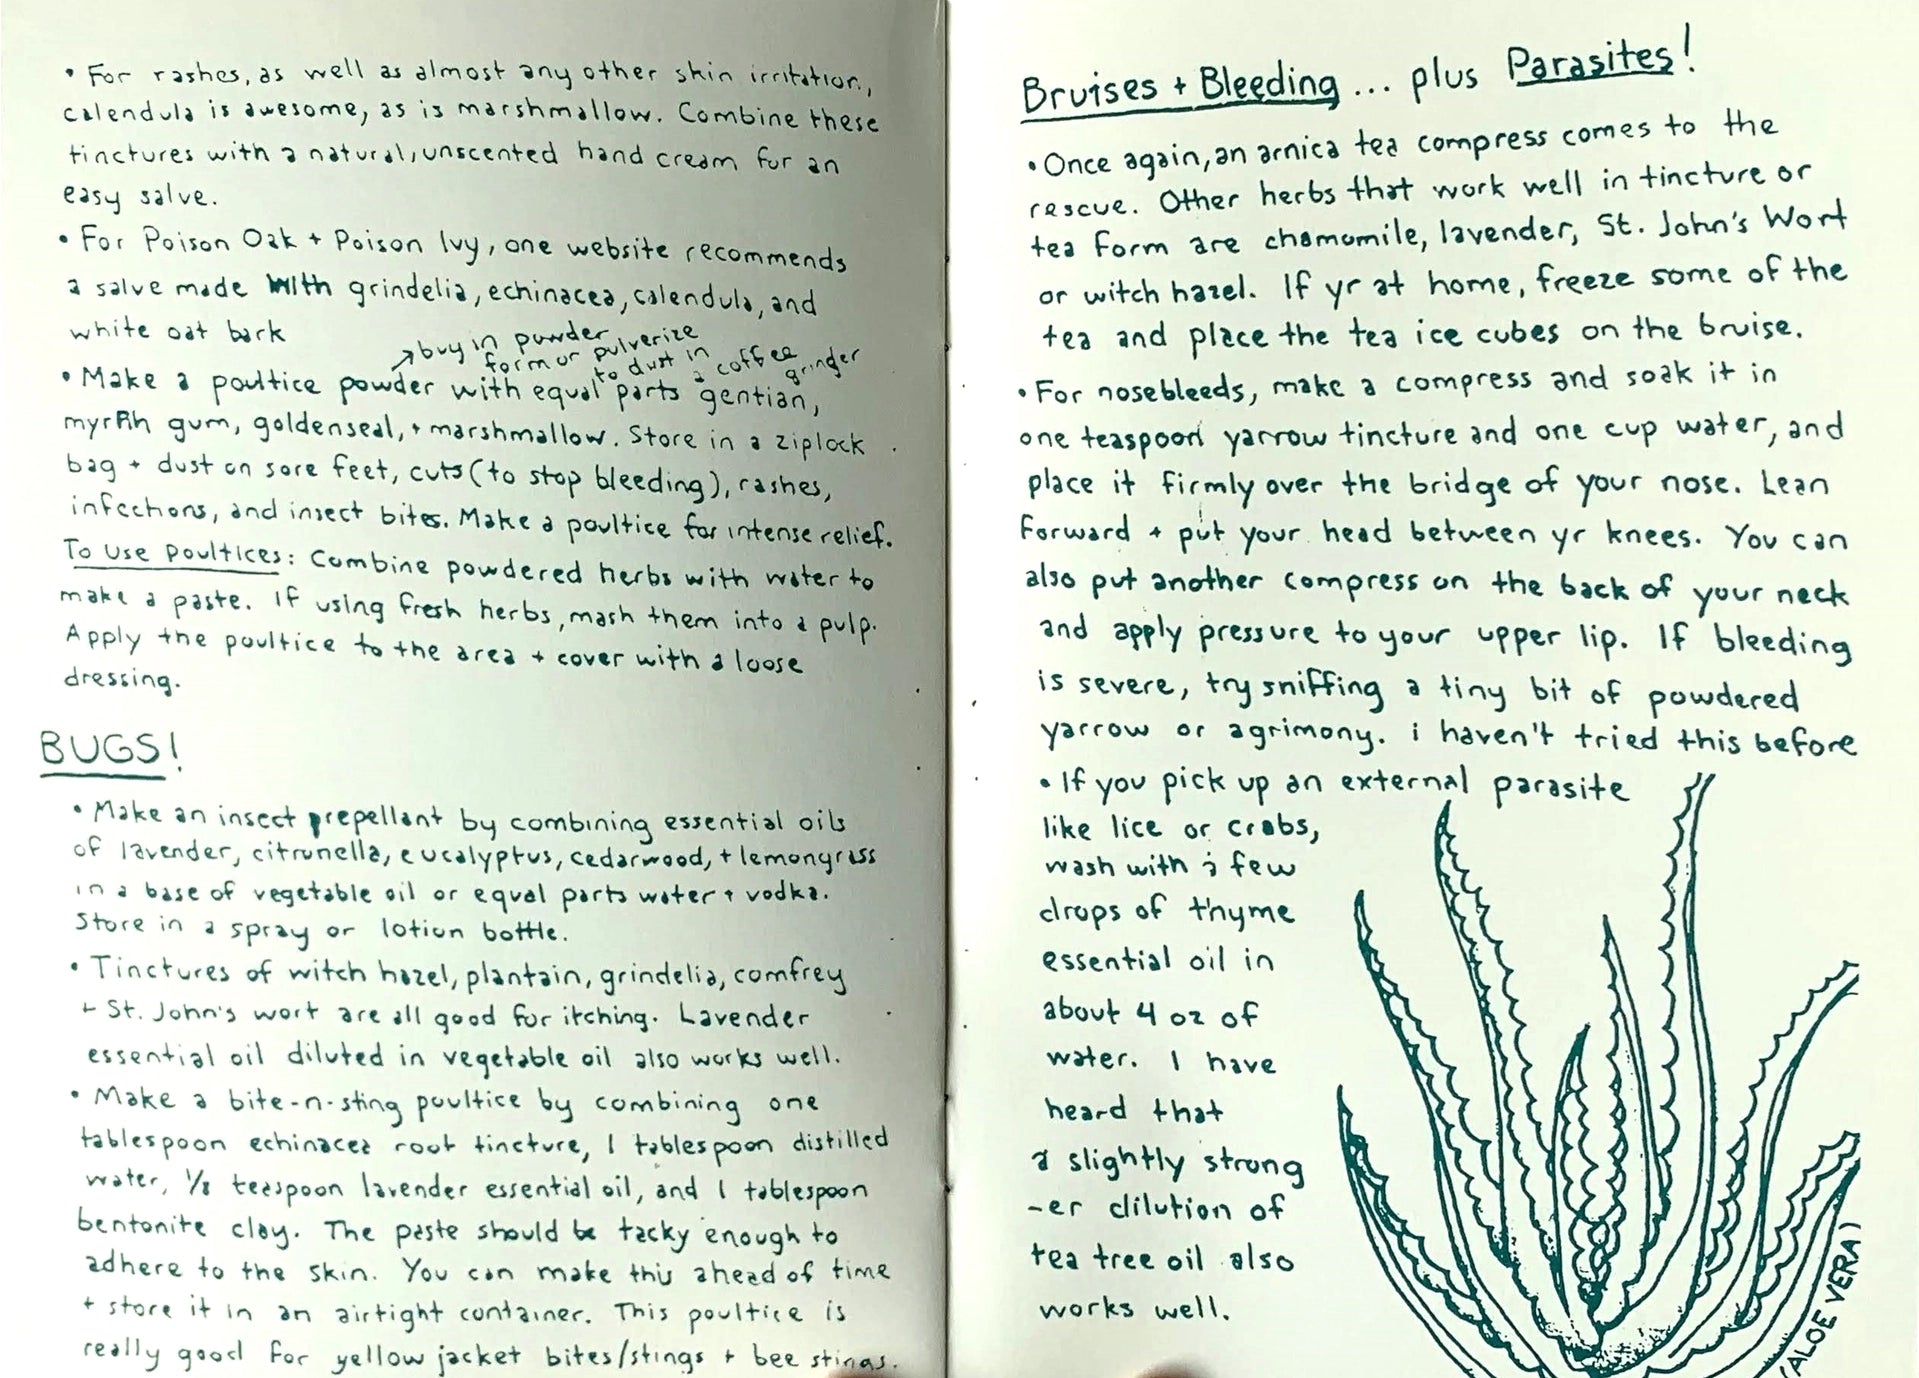 • For rashes, as well as almost any other skin irritation,
calendula is awesome, as is marshmallow. Combine these
tinctures with a natural, unscented hand cream for an
easy salve.
• For Poison Oak + Poison Ivy, one website recommends
a salve made with grindelia, echinacea, calendula, and
white oat bark
→ buy in powder
form or pulverize
to dust in
a coffee
grinder
• Make a poultice powder with equal parts gentian,
myrrh gum, goldenseal, + marshmallow. Store in a ziplock
bag + dust on sore feet, cuts (to stop bleeding), rashes,
infections, and insect bites. Make a poultice for intense relief.
To Use Poultices: Combine powdered herbs with water to
make a paste. If using fresh herbs, mash them into a pulp.
Apply the poultice to the area + cover with a loose
dressing.
BUGS!
• Make an insect repellant by combining essential oils
of lavender, citrunella, eucalyptus, cedarwood, + lemongrass
in a base of vegetable oil or equal parts water + vodka.
Store in a spray or lotion bottle.
• Tinctures of witch hazel, plantain, grindelia, comfrey
+ St. John's wort are all good for itching. Lavender
essential oil diluted in vegetable oil also works well.
• Make a bite-n-sting poultice by combining one
tablespoon echinacea root tincture, 1 tablespoon distilled
water, 1/8 teaspoon lavender essential oil, and 1 tablespoon
bentonite clay. The paste should be tacky enough to
adhere to the skin. You can make this ahead of time
+ store it in an airtight container. This poultice is
really good for yellow jacket bites/stings + bee stings.
Bruises + Bleeding ... plus Parasites!
• Once again, an arnica tea compress comes to the
rescue. Other herbs that work well in tincture or
tea form are chamomile, lavender, St. John's Wort
or witch hazel. If yr at home, freeze some of the
tea and place the tea ice cubes on the bruise.
• For nosebleeds, make a compress and soak it in
one teaspoon yarrow tincture and one cup water, and
place it firmly over the bridge of your nose. Lean
forward + put your head between yr knees. You can
also put another compress on the back of your neck
and apply pressure to your upper lip. If bleeding
is severe, try sniffing a tiny bit of powdered
yarrow or agrimony. i haven't tried this before
• If you pick up an external parasite
like lice or crabs,
wash with a few
drops of thyme
essential oil in
about 4 oz of
water. I have
heard that
a slightly strong
-er dilution of
tea tree oil also
works well.
(ALOE VERA)